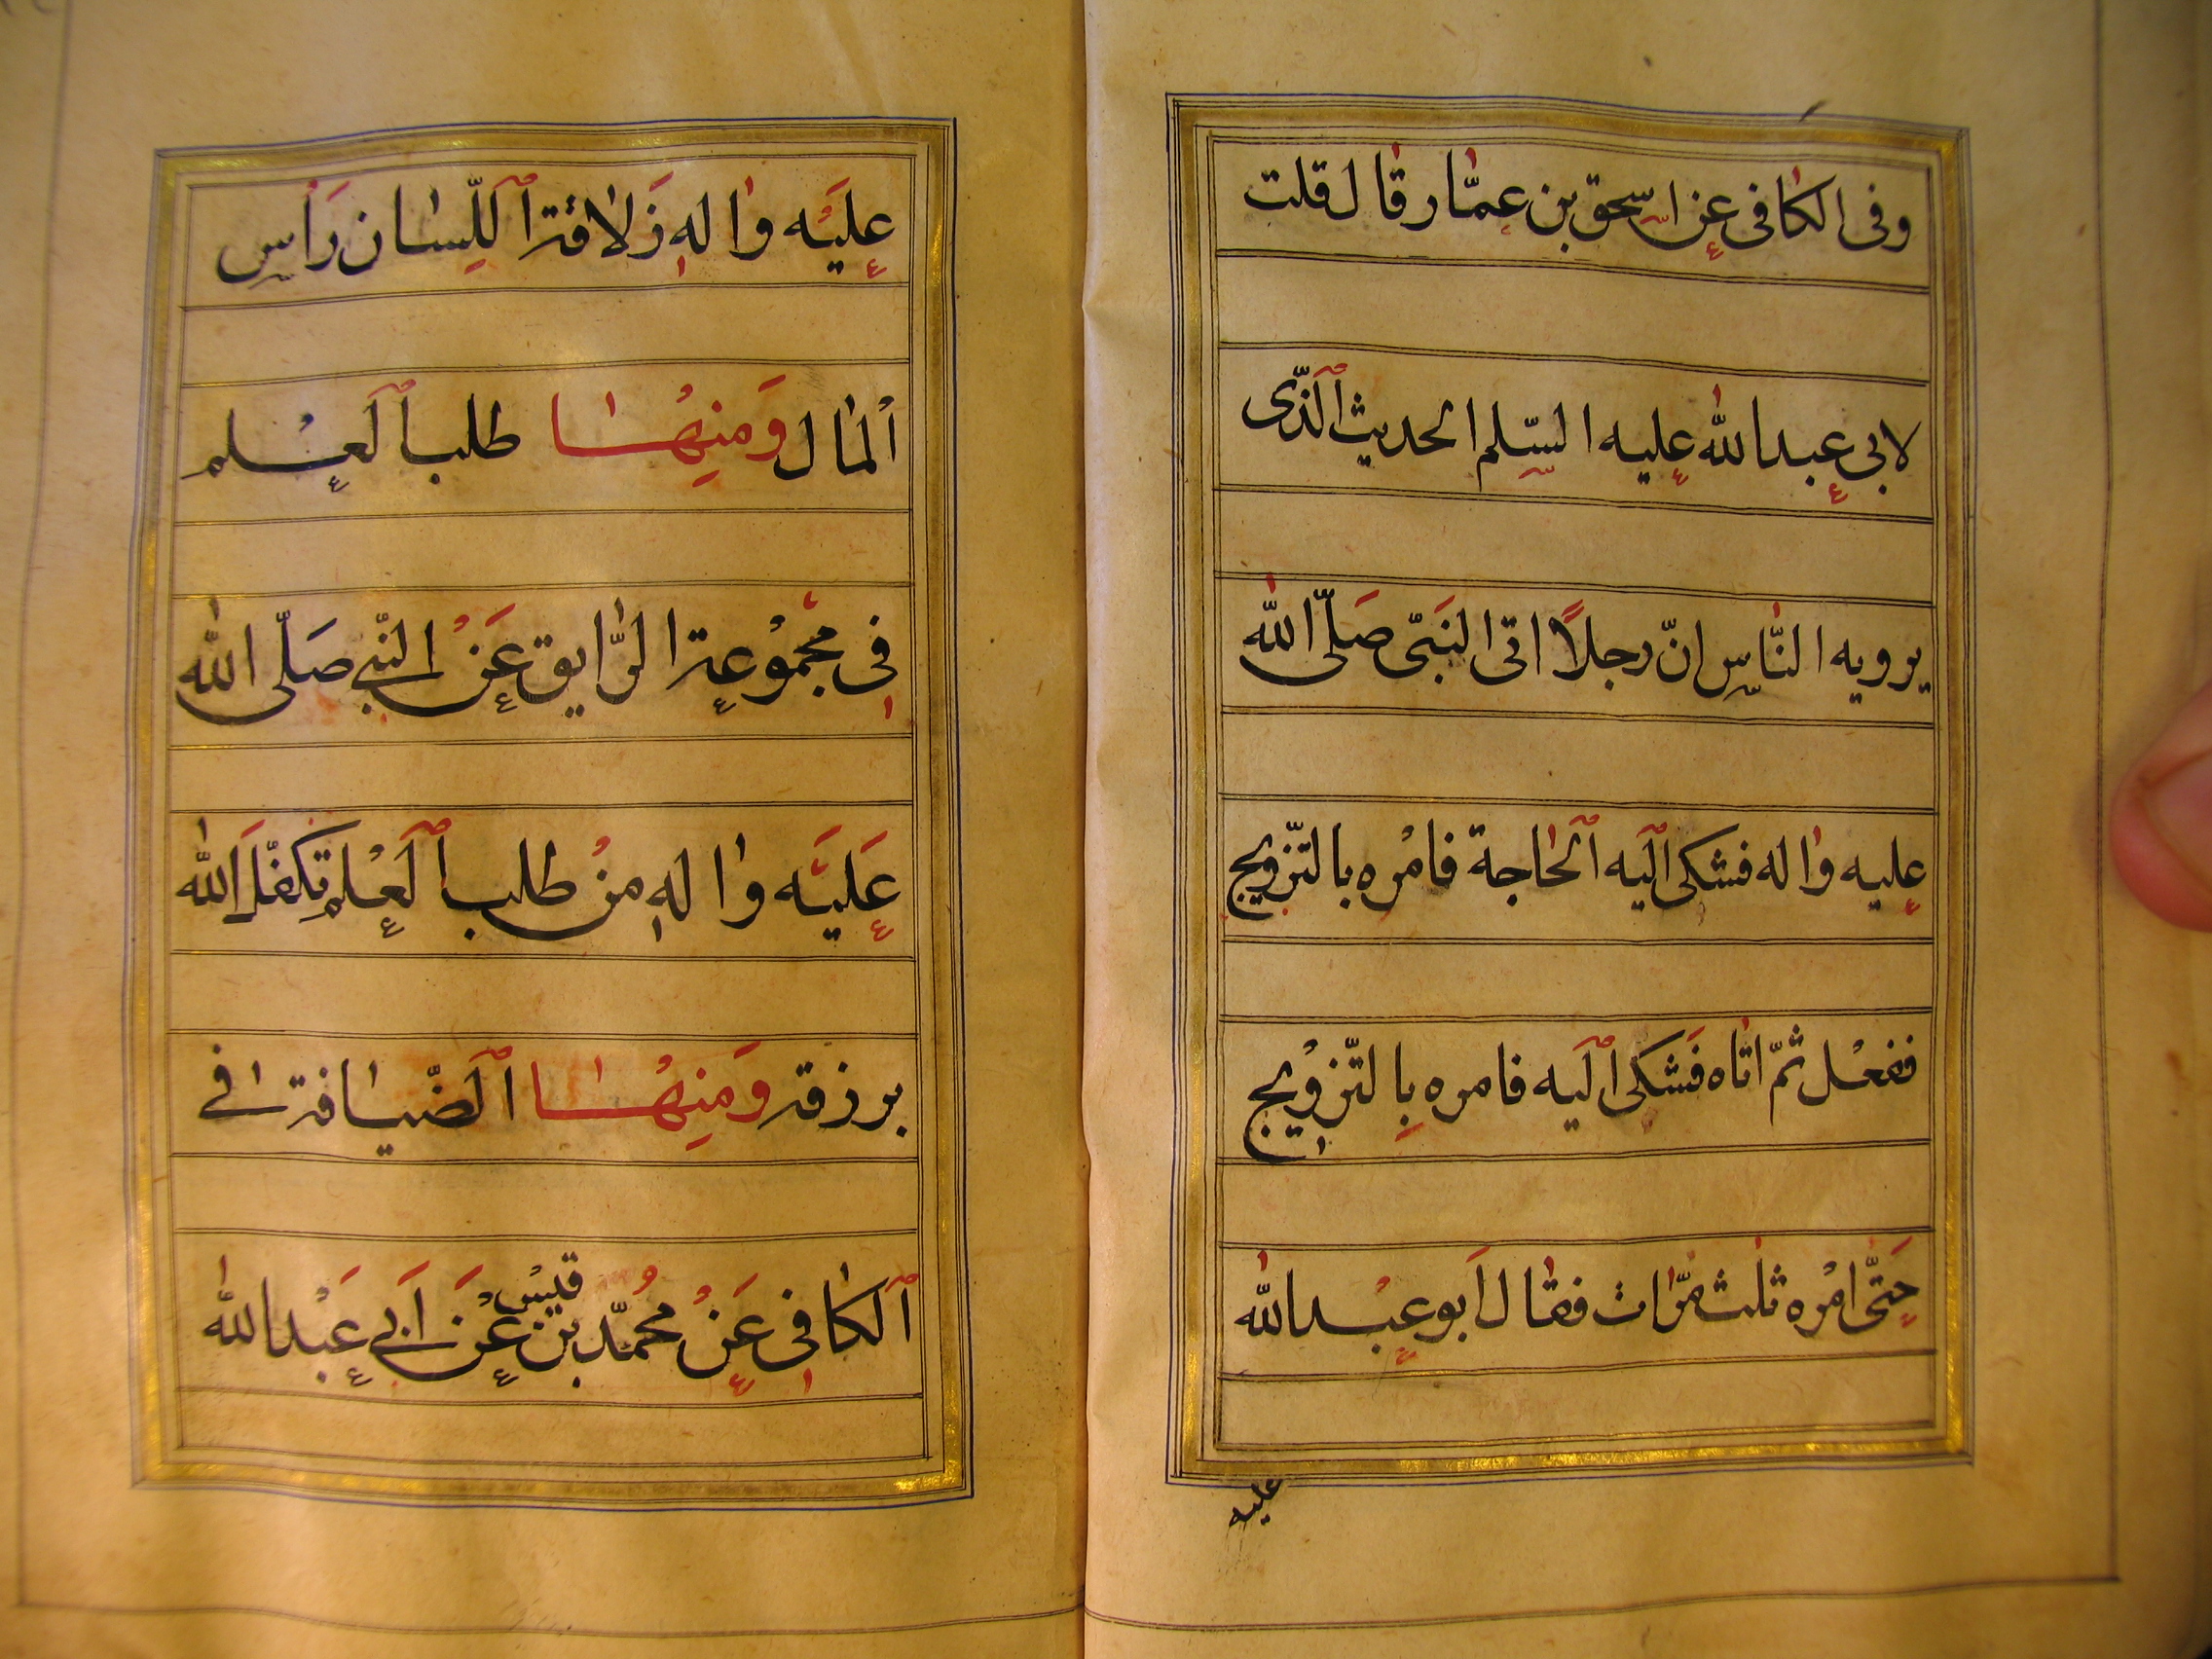 وفى الكافى عن اسحق بن عمّار قال قلت
لابى عبد الله عليه السّلم الحديث الّذى
يرويه النّاس انّ رجلاً اتى النَبىّ صَلّى الله
عليه واله فشكى اليه الحاجة فامْره بالتّزويج
ففعْل ثمّ اتاه فَشكى اليه فامره بِالتّزوِيج
حَتّى امْره ثلث مّرات فقال اَبو عبْد الله
عليه
عِليَه واله زَلاقة اللّسان رَأس
المال وَمنِهُا طلب العِلْم
فِى مجْموُعِة الرّايق عَنْ النّبي صَلّى الله
عَليَه واله منْ طلب العِلْم تكفّلَ الله
برزقه وَمنِهُا الضّيافة فے
الكافِى عَنْ محُمّد بن قيْس عَنْ اَبي عَبْد الله